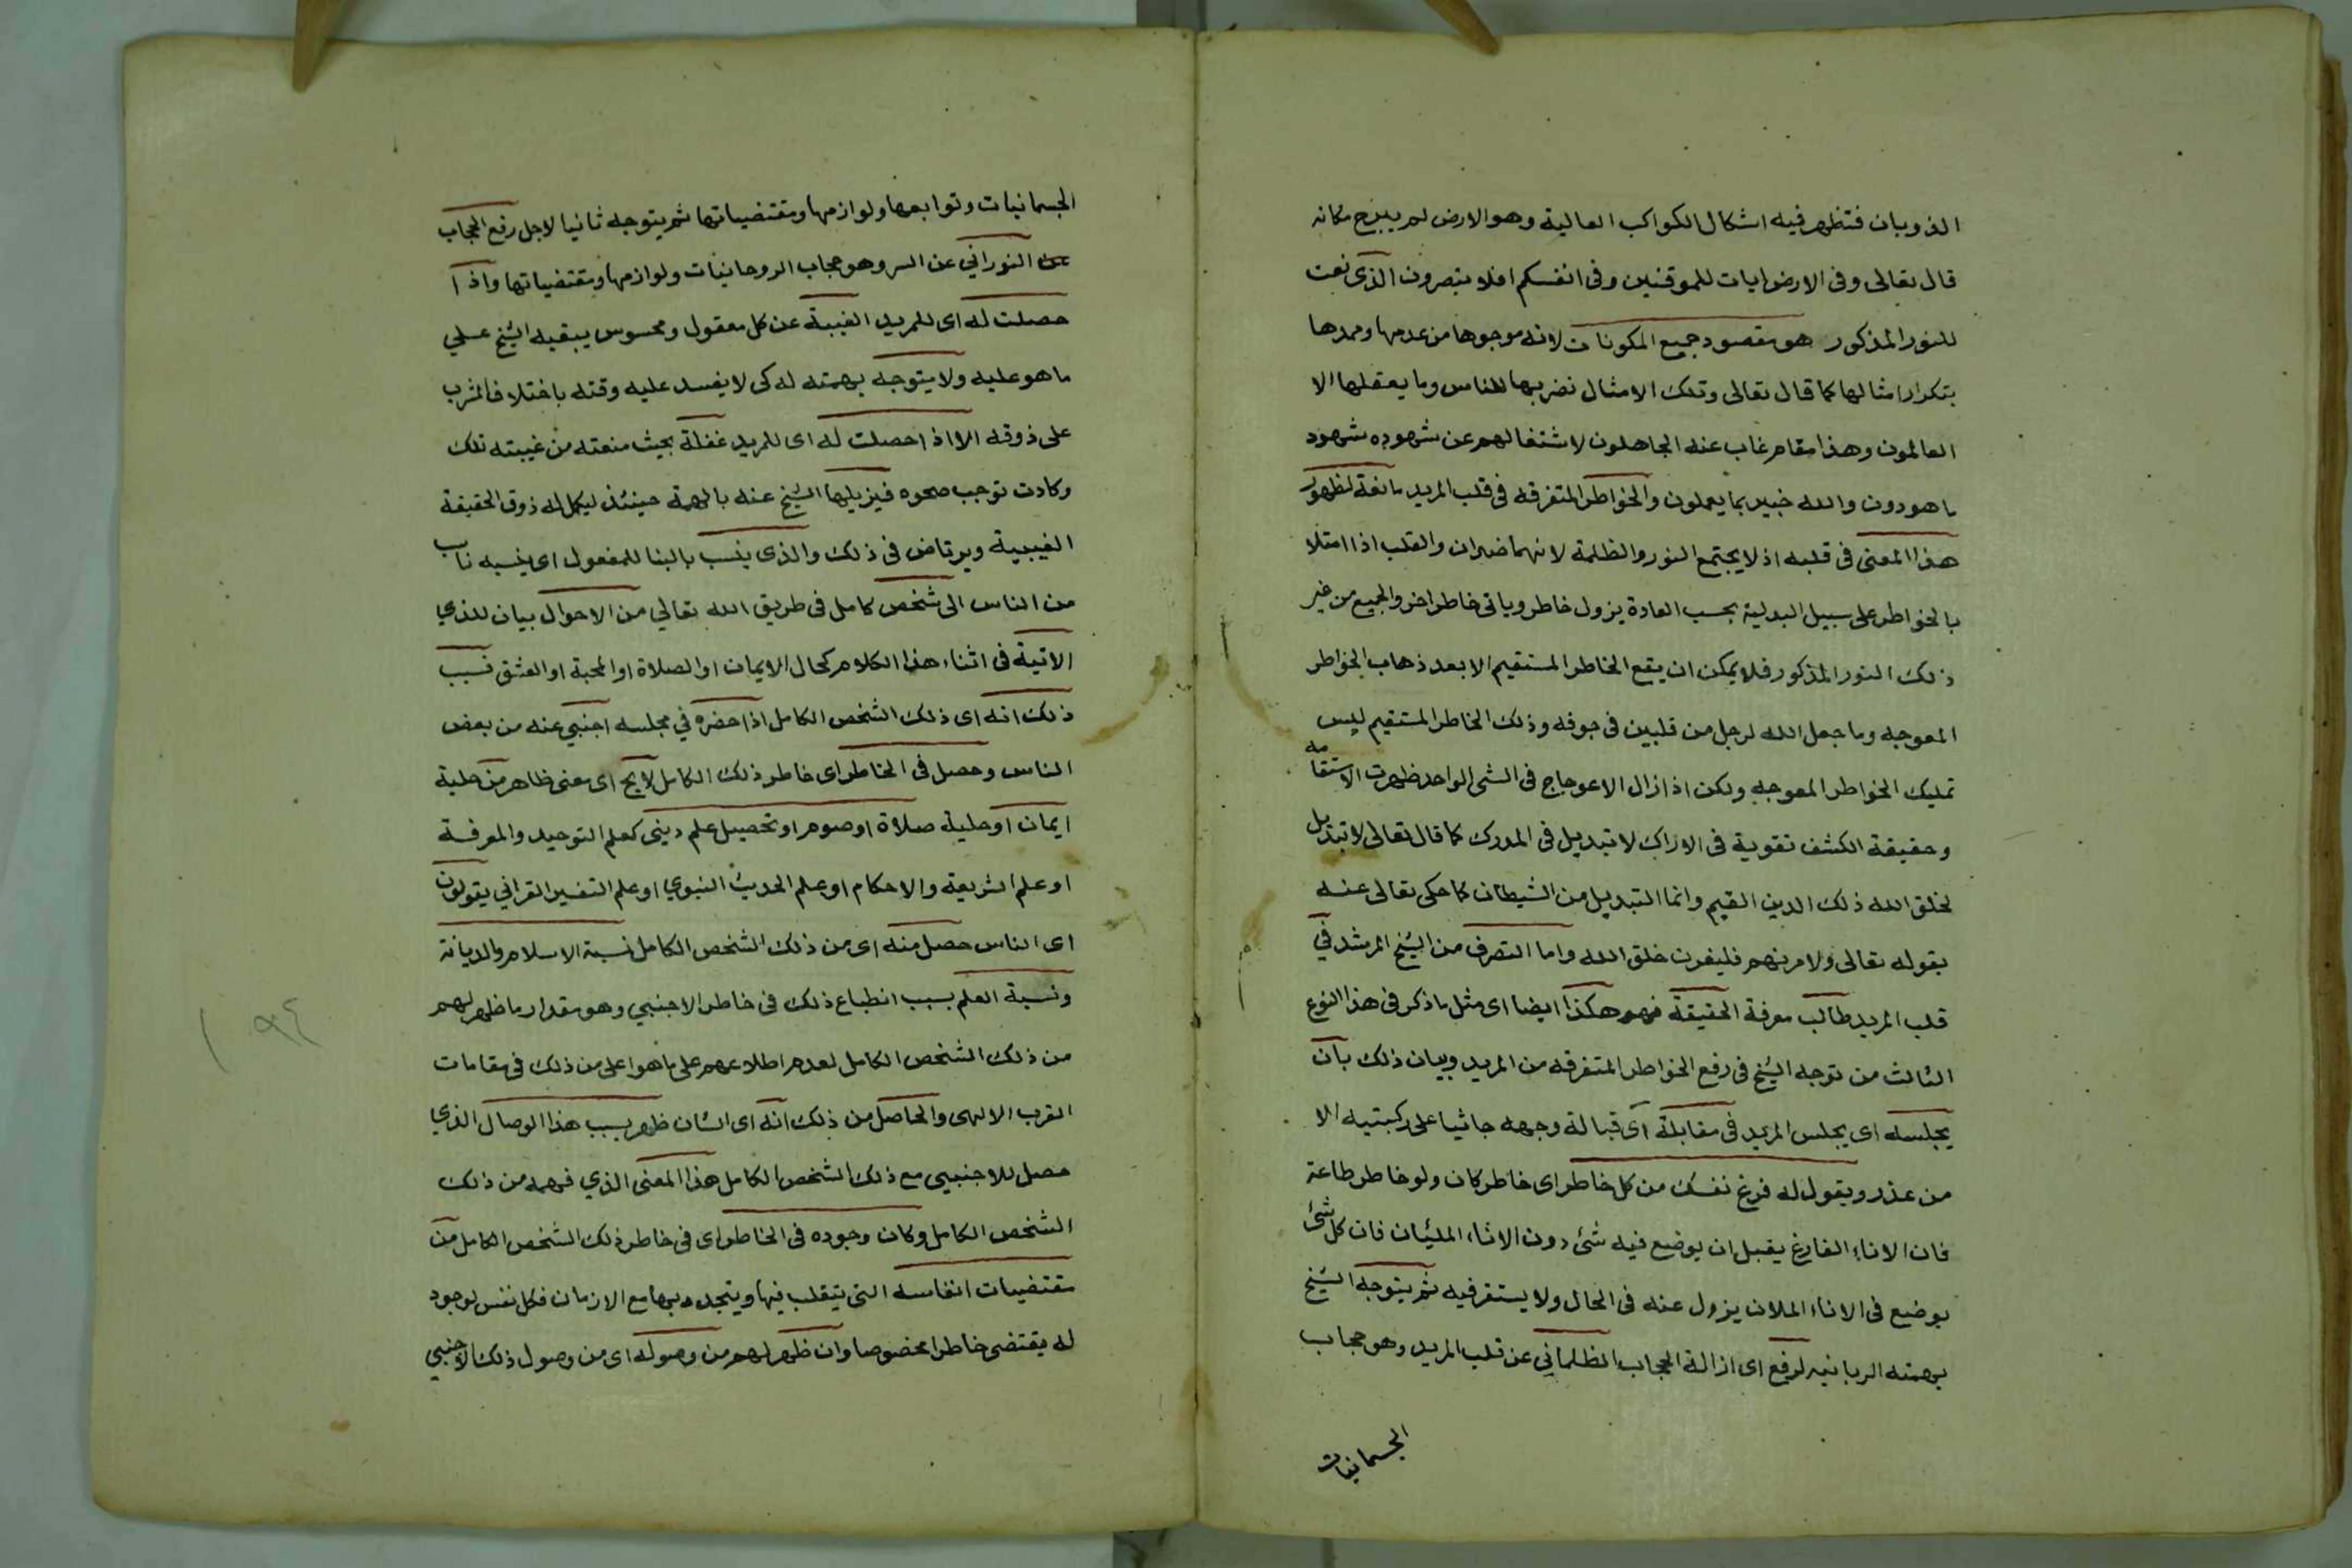 الذوبان فتظهر فيه اشكال الكواكب العالية وهو الارض لم يبرح مكانه
قال تعالى وفى الارض ايات للموقنين وفى انفسكم افلا تبصرون الذى نعت
للنور المذكور هو مقصود جميع المكونات لانه موجوها من عدمها وممدها
بتكرار امثالها كما قال تعالى وتلك الامثال نضربها للناس وما يعقلها الا
العالمون وهذا مقام غاب عنه الجاهلون لاشتغالهم عن شهوده شهود
ما هو دون والله خبير بما يعملون والخواطر المتفرقه فى قلب المريد مانعة لظهور
هذا المعنى فى قلبه اذ لا يجتمع النور والظلمة لانهما ضدان والقلب اذا امتلا
بالخواطر على سبيل البدلية بحسب العادة يزول خاطر وياتى خاطر اخر والجميع من غير
ذلك النور المذكور فلا يمكن ان يقع الخاطر المستقيم الا بعد ذهاب الخواطر
المعوجه وما جعل الله لرجل من قلبين فى جوفه وذلك الخاطر المستقيم ليس
تمليك الخواطر المعوجه ولكن اذا زال الاعوجاج فى الشى الواحد ظهرت الاستقامه
وحقيقة الكشف تقوية فى الادراك لا تبديل فى المدرك كما قال تعالى لا تبديل
لخلق الله ذلك الدين القيم وانما التبديل من الشيطان كما حكى تعالى عنه
بقوله تعالى ولامرنهم فليغرن خلق الله واما التصرف من الشيخ المرشد في
قلب المريد طالب معرفة الحقيقة فهو هكذا ايضا اى مثل ما ذكر فى هذا النوع
الثالث من توجه الشيخ فى رفع الخواطر المتفرقه من المريد وبيان ذلك بان
يجلسه اى يجلس المريد فى مقابلة اى قبالة وجهه جاثيا على ركبتيه الا
من عذر ويقول له فرغ نفسك من كل خاطر اى خاطر كان ولو خاطر طاعة
فان الاناء الفارغ يقبل ان يوضع فيه شئ دون الاناء المليان فان كل شئ
يوضع فى الاناء الملان يزول عنه فى الحال ولا يستقر فيه ثم يتوجه الشيخ
بهمته الربانيه لرفع اى ازالة الحجاب الظلماني عن قلب المريد وهو حجاب
الجسمانيات
الجسمانيات وتوابعها ولوازمها ومقتضياتها ثم يتوجه ثانيا لاجل رفع الحجاب
النوراني عن السر وهو حجاب الروحانيات ولوازمها ومقتضياتها واذا
حصلت له اى للمريد الغيبة عن كل معقول ومحسوس يبقيه الشيخ على
ما هو عليه ولا يتوجه بهمته له كى لا يفسد عليه وقته باختلاف المشرب
على ذوقه الا اذا حصلت له اى للمريد غفلة بحيث منعته من غيبته تلك
وكادت توجب صحوه فيزيلها الشيخ عنه بالهمة حينئذ ليكمل له ذوق الحقيقة
الغيبية ويرتاض فى ذلك والذى ينسب بالبنا للمفعول اى ينسبه ناب
من الناس الى شخص كامل فى طريق الله تعالي من الاحوال بيان للذي
الاتية فى اثناء هذا الكلام كحال الايمان او الصلاة او المحبة او العشق فسبب
ذلك انه اى ذلك الشخص الكامل اذا حضره في مجلسه اجنبي عنه من بعض
الناس وحصل فى الخاطر اى خاطر ذلك الكامل لايح اى معنى ظاهر من حلية
ايمان او حلية صلاة او صوم او تحصيل علم دينى كعلم التوحيد والمعرفة
او علم الشريعة والاحكام او علم الحديث النبوي او علم التفسير القراني يقولون
اى الناس حصل منه اى من ذلك الشخص الكامل نسبة الاسلام والديانة
ونسبة العلم بسبب انطباع ذلك فى خاطر الاجنبي وهو مقدار ما ظهر لهم
من ذلك الشخص الكامل لعدم اطلاعهم على ما هو اعلى من ذلك فى مقامات
القرب الالهى والحاصل من ذلك انه اى الشان ظهر بسبب هذا الوصال الذي
حصل للاجنبي مع ذلك الشخص الكامل هذا المعنى الذي فهمه من ذلك
الشخص الكامل وكان وجوده فى الخاطر اى فى خاطر ذلك الشخص الكامل من
مقتضيات انفاسه التى يتقلب فيها ويتجدد بها مع الازمان فكل نفس لوجود
له يقتضى خاطرا مخصوصا وان ظهر لهم من وصوله اى من وصول ذلك الاجنبي
١٩٤